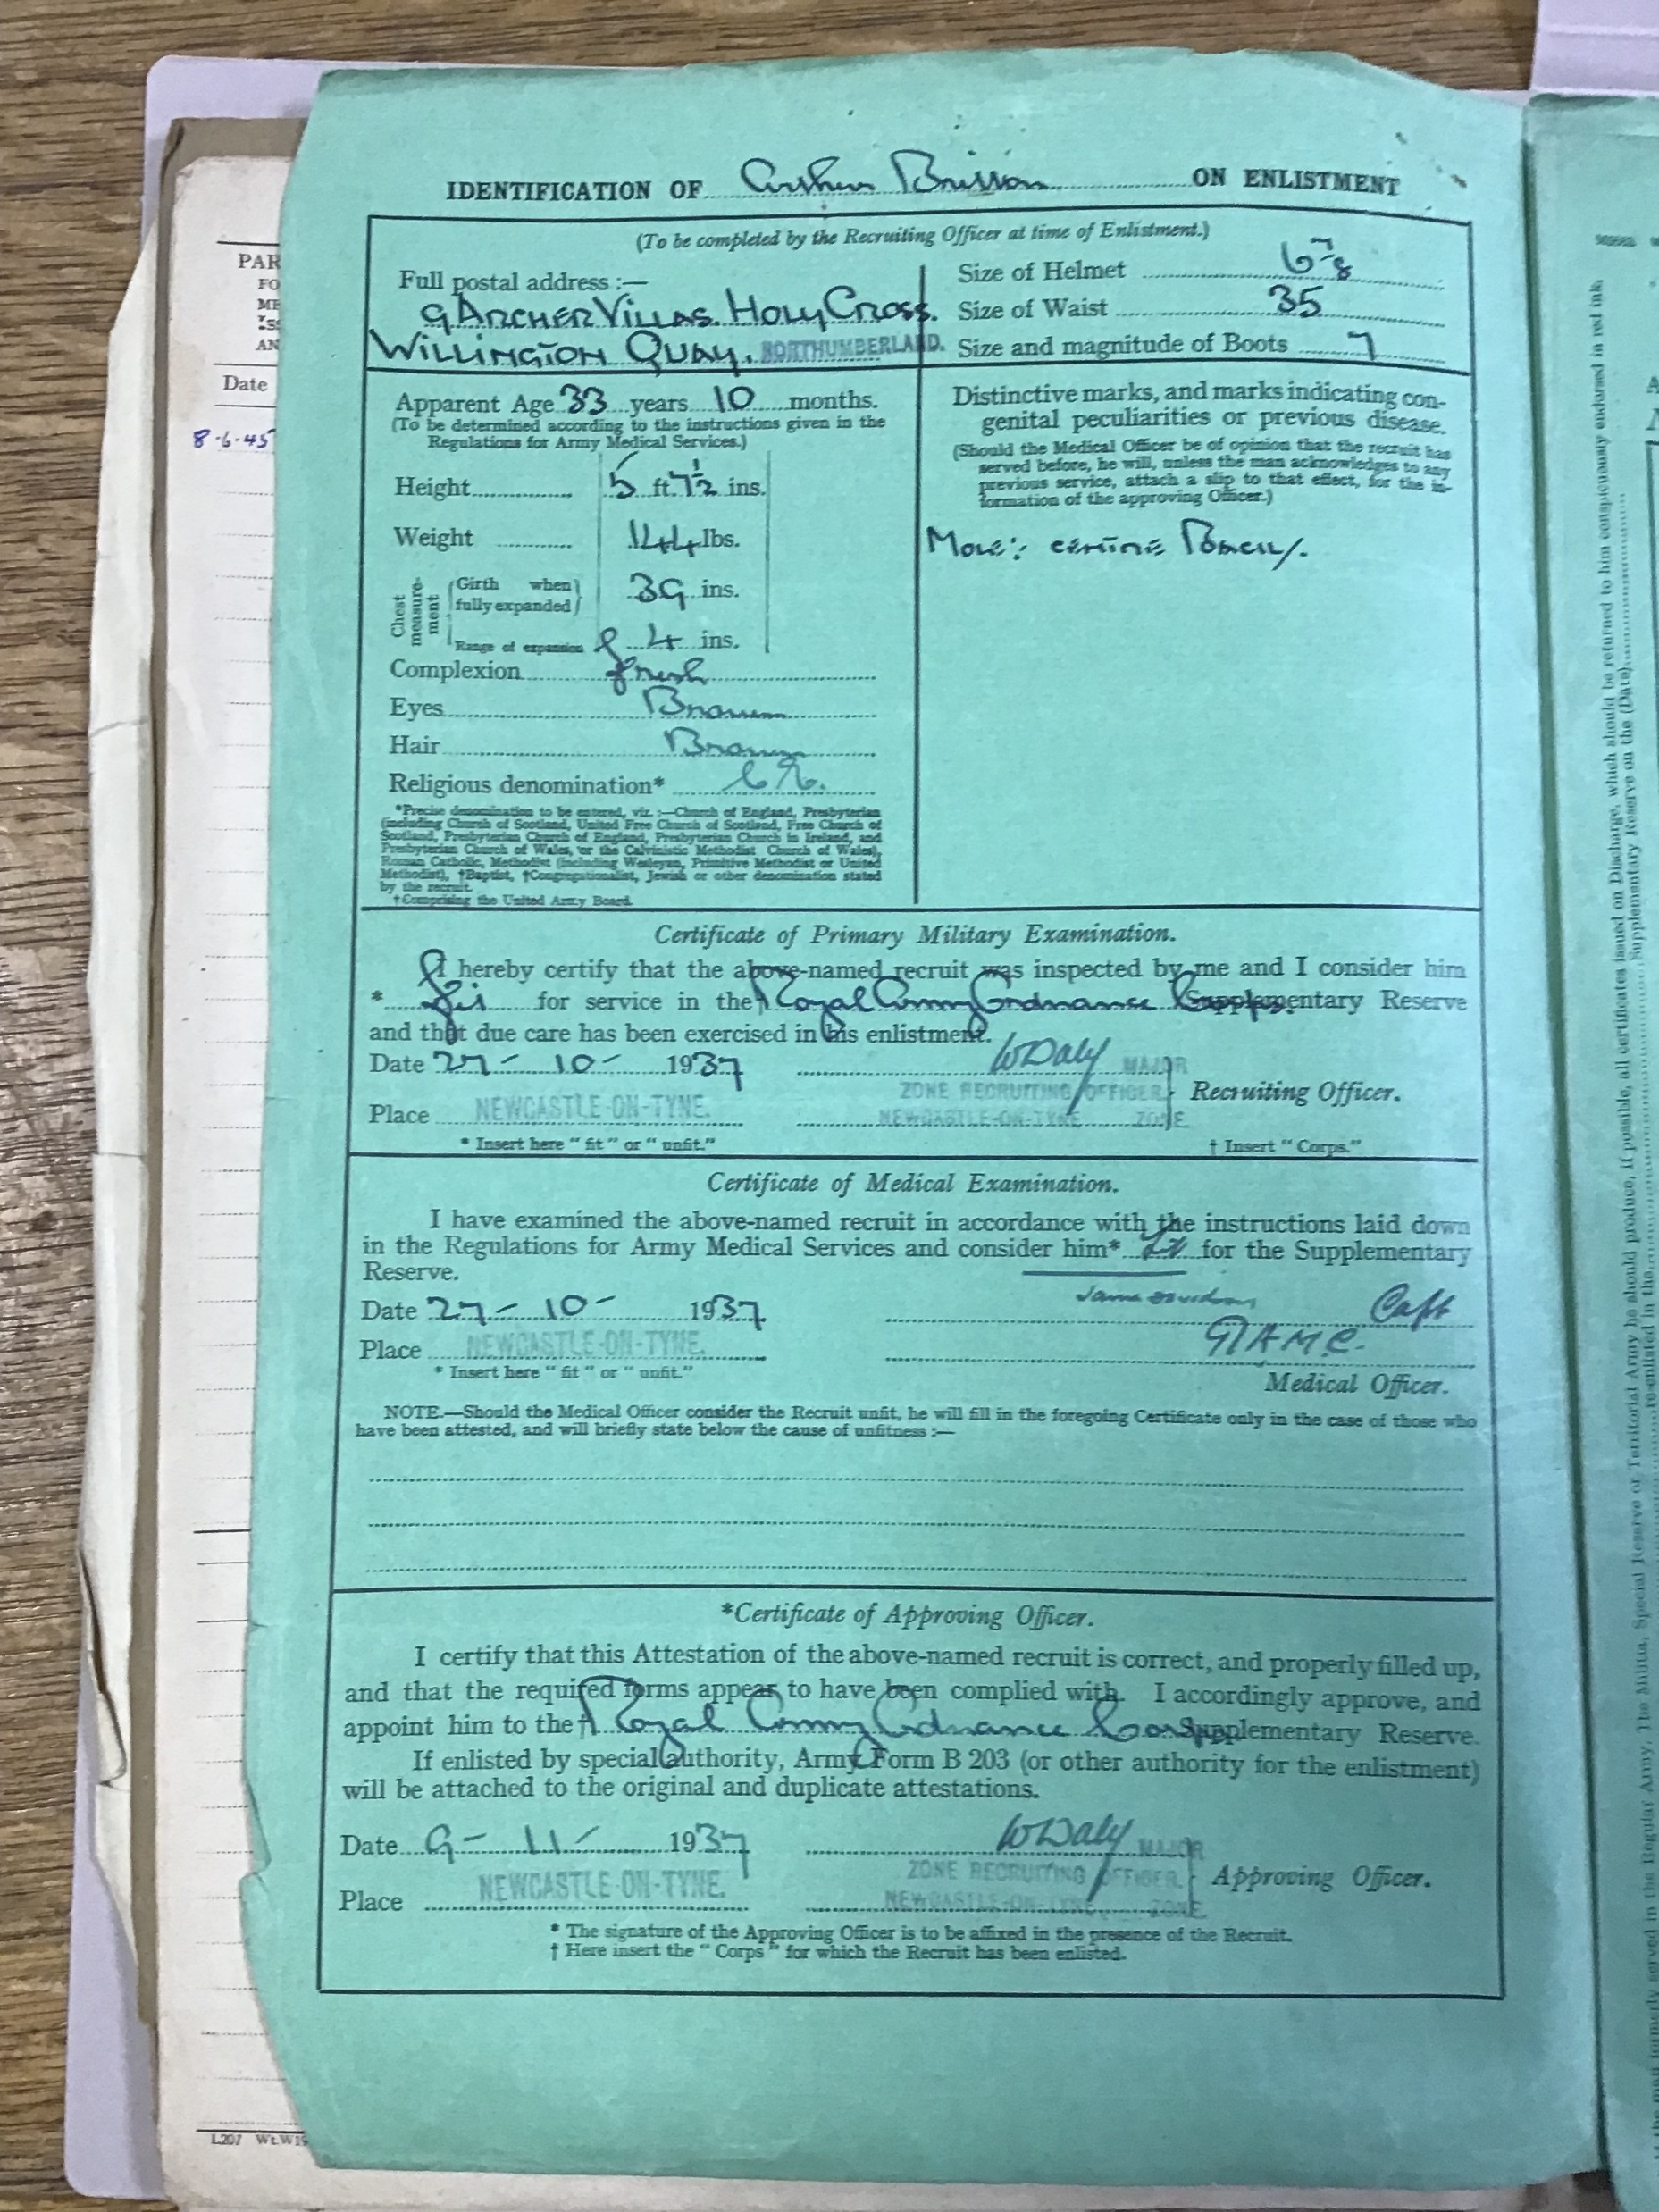 IDENTIFICATION OF Arthur ON ENLISTMENT
(To be completed by the Recruiting Officer at time of Enlistment.)
Full postal address :—
9 ARCHER VILLAS. HOLY CROSS.
WILLINGTON QUAY. NORTHUMBERLAND.
Size of Helmet 6 7/8
Size of Waist 35
Size and magnitude of Boots 7
Apparent Age 33 years 10 months.
(To be determined according to the instructions given in the
Regulations for Army Medical Services.)
Height 5 ft. 7½ ins.
Weight 144 lbs.
Chest measure-ment
Girth when fully expanded 39 ins.
Range of expansion 4 ins.
Complexion fresh
Eyes Brown
Hair Brown
Religious denomination* CE.
*Precise denomination to be entered, viz. :—Church of England, Presbyterian
(including Church of Scotland, United Free Church of Scotland, Free Church of
Scotland, Presbyterian Church of England, Presbyterian Church in Ireland, and
Presbyterian Church of Wales, or the Calvinistic Methodist Church of Wales),
Roman Catholic, Methodist (including Wesleyan, Primitive Methodist or United
Methodist), †Baptist, †Congregationalist, Jewish or other denomination stated
by the recruit.
†Comprising the United Army Board.
Distinctive marks, and marks indicating con-
genital peculiarities or previous disease.
(Should the Medical Officer be of opinion that the recruit has
served before, he will, unless the man acknowledges to any
previous service, attach a slip to that effect, for the in-
formation of the approving Officer.)
Certificate of Primary Military Examination.
I hereby certify that the above-named recruit was inspected by me and I consider him
* fit for service in the † Royal Army Ordnance Corps Supplementary Reserve
and that due care has been exercised in his enlistment.
Date 27 - 10 - 1937 W Daly MAJOR
ZONE RECRUITING OFFICER Recruiting Officer.
Place NEWCASTLE-ON-TYNE. NEWCASTLE-ON-TYNE ZONE
* Insert here “ fit ” or “ unfit.” † Insert “ Corps.”
Certificate of Medical Examination.
I have examined the above-named recruit in accordance with the instructions laid down
in the Regulations for Army Medical Services and consider him* fit for the Supplementary
Reserve.
Date 27 - 10 - 1937 James Davidson Capt
Place NEWCASTLE-ON-TYNE. R.A.M.C.
* Insert here “ fit ” or “ unfit.”
Medical Officer.
NOTE.—Should the Medical Officer consider the Recruit unfit, he will fill in the foregoing Certificate only in the case of those who
have been attested, and will briefly state below the cause of unfitness :—
*Certificate of Approving Officer.
I certify that this Attestation of the above-named recruit is correct, and properly filled up,
and that the required forms appear to have been complied with. I accordingly approve, and
appoint him to the† Royal Army Ordnance Corps Supplementary Reserve.
If enlisted by special authority, Army Form B 203 (or other authority for the enlistment)
will be attached to the original and duplicate attestations.
Date 9 - 11 - 1937 W Daly MAJOR
ZONE RECRUITING OFFICER. Approving Officer.
Place NEWCASTLE-ON-TYNE. NEWCASTLE-ON-TYNE ZONE
* The signature of the Approving Officer is to be affixed in the presence of the Recruit.
† Here insert the “ Corps ” for which the Recruit has been enlisted.
PAR
FO
ME
AN
Date
8·6·45
L207 Wt.W19